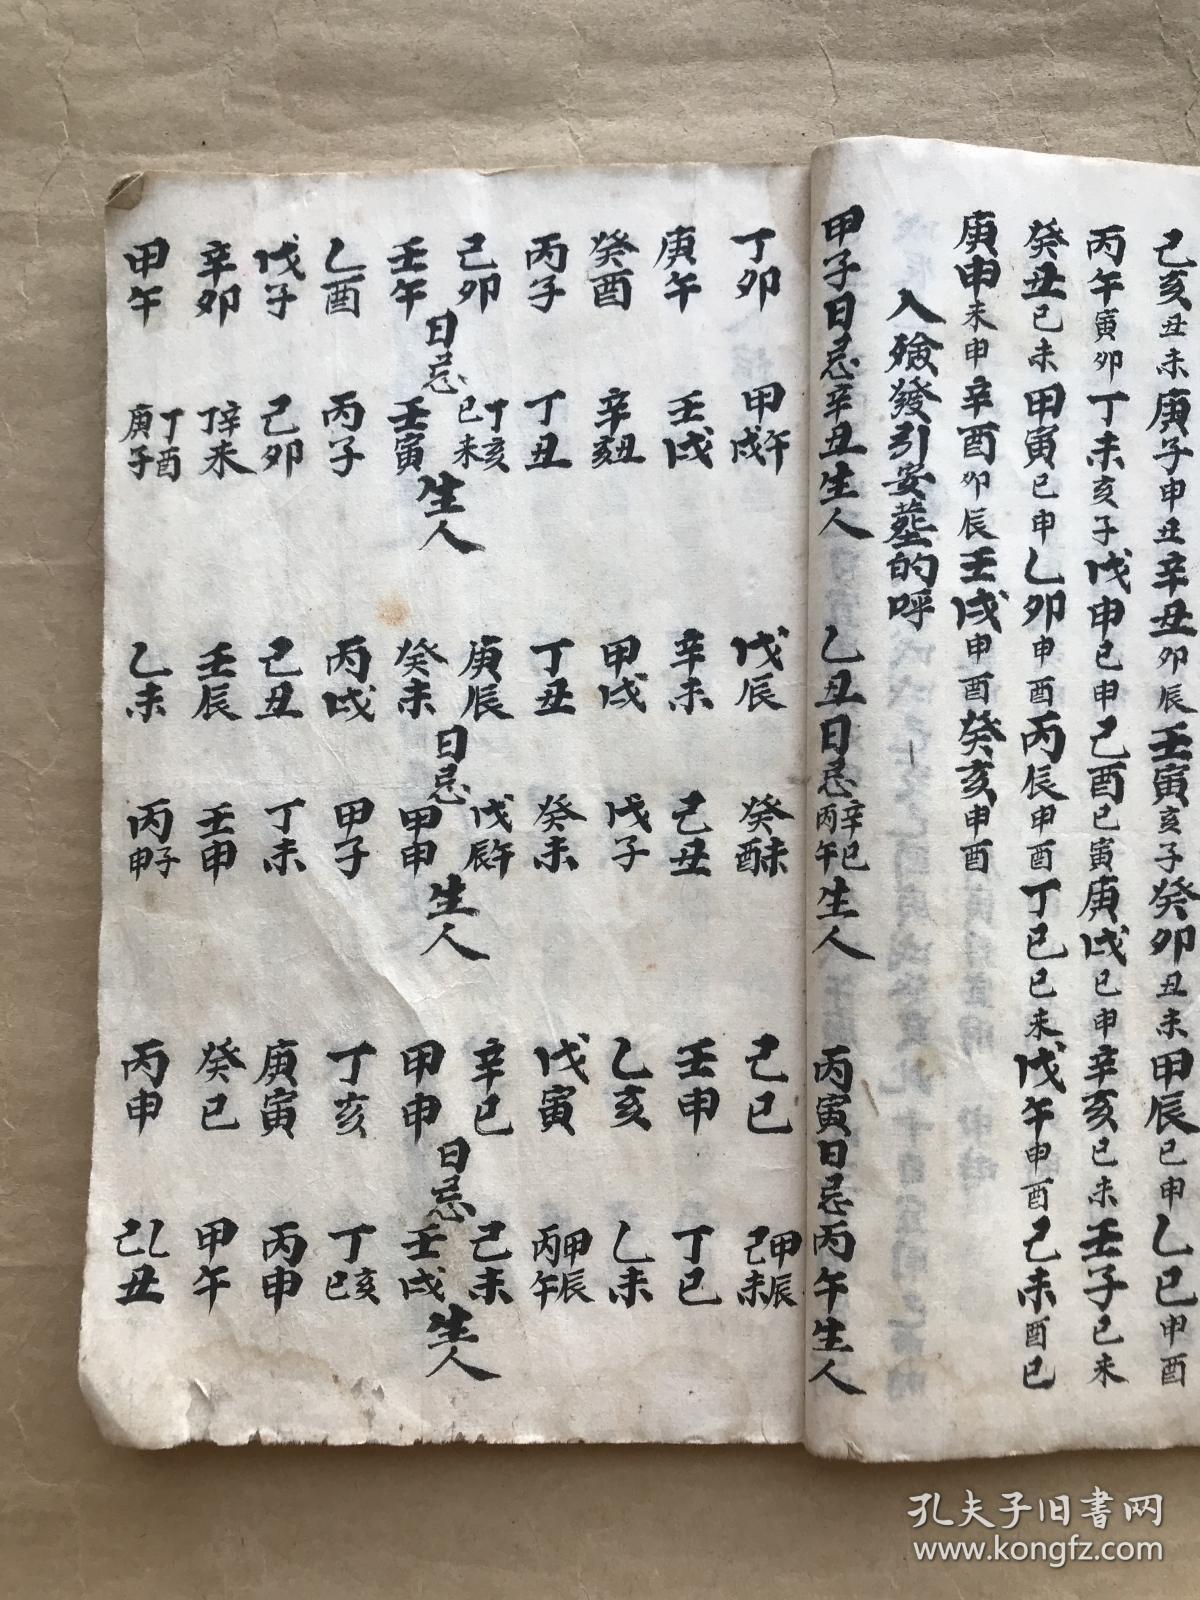 己亥丑未庚子申丑辛丑卯辰壬寅亥子癸卯丑未甲辰巳申乙巳申酉
丙午寅卯丁未亥子戊申巳申己酉巳寅庚戌巳申辛亥巳未壬子巳未
癸丑巳未甲寅巳申乙卯申酉丙辰申酉丁巳巳未戊午申酉己未酉巳
庚申未申辛酉卯辰壬戌申酉癸亥申酉
入殮發引安葬的呼
甲子日忌辛丑生人 乙丑日忌辛巳丙午生人 丙寅日忌丙午生人
丁卯 甲戌午 戊辰 癸酉未 己巳 甲辰己未
庚午 壬戌 辛未 己丑 壬申 丁巳
癸酉 辛丑亥 甲戌 戊子 乙亥 乙未
丙子 丁丑 丁丑 癸未 戊寅 甲辰丙午
己卯 丁亥己未 庚辰 戊午辰 辛巳 己未
日忌 生人 日忌 生人 日忌 生人
壬午 壬寅 癸未 甲申 甲申 壬戌
乙酉 丙子 丙戌 甲子 丁亥 丁亥巳
戊子 己卯 己丑 丁未 庚寅 丙申
辛卯 辛丁未 壬辰 壬申 癸巳 甲午
甲午 丁酉庚子 乙未 丙子申 丙申 乙己丑
孔夫子旧书网
www.kongfz.com